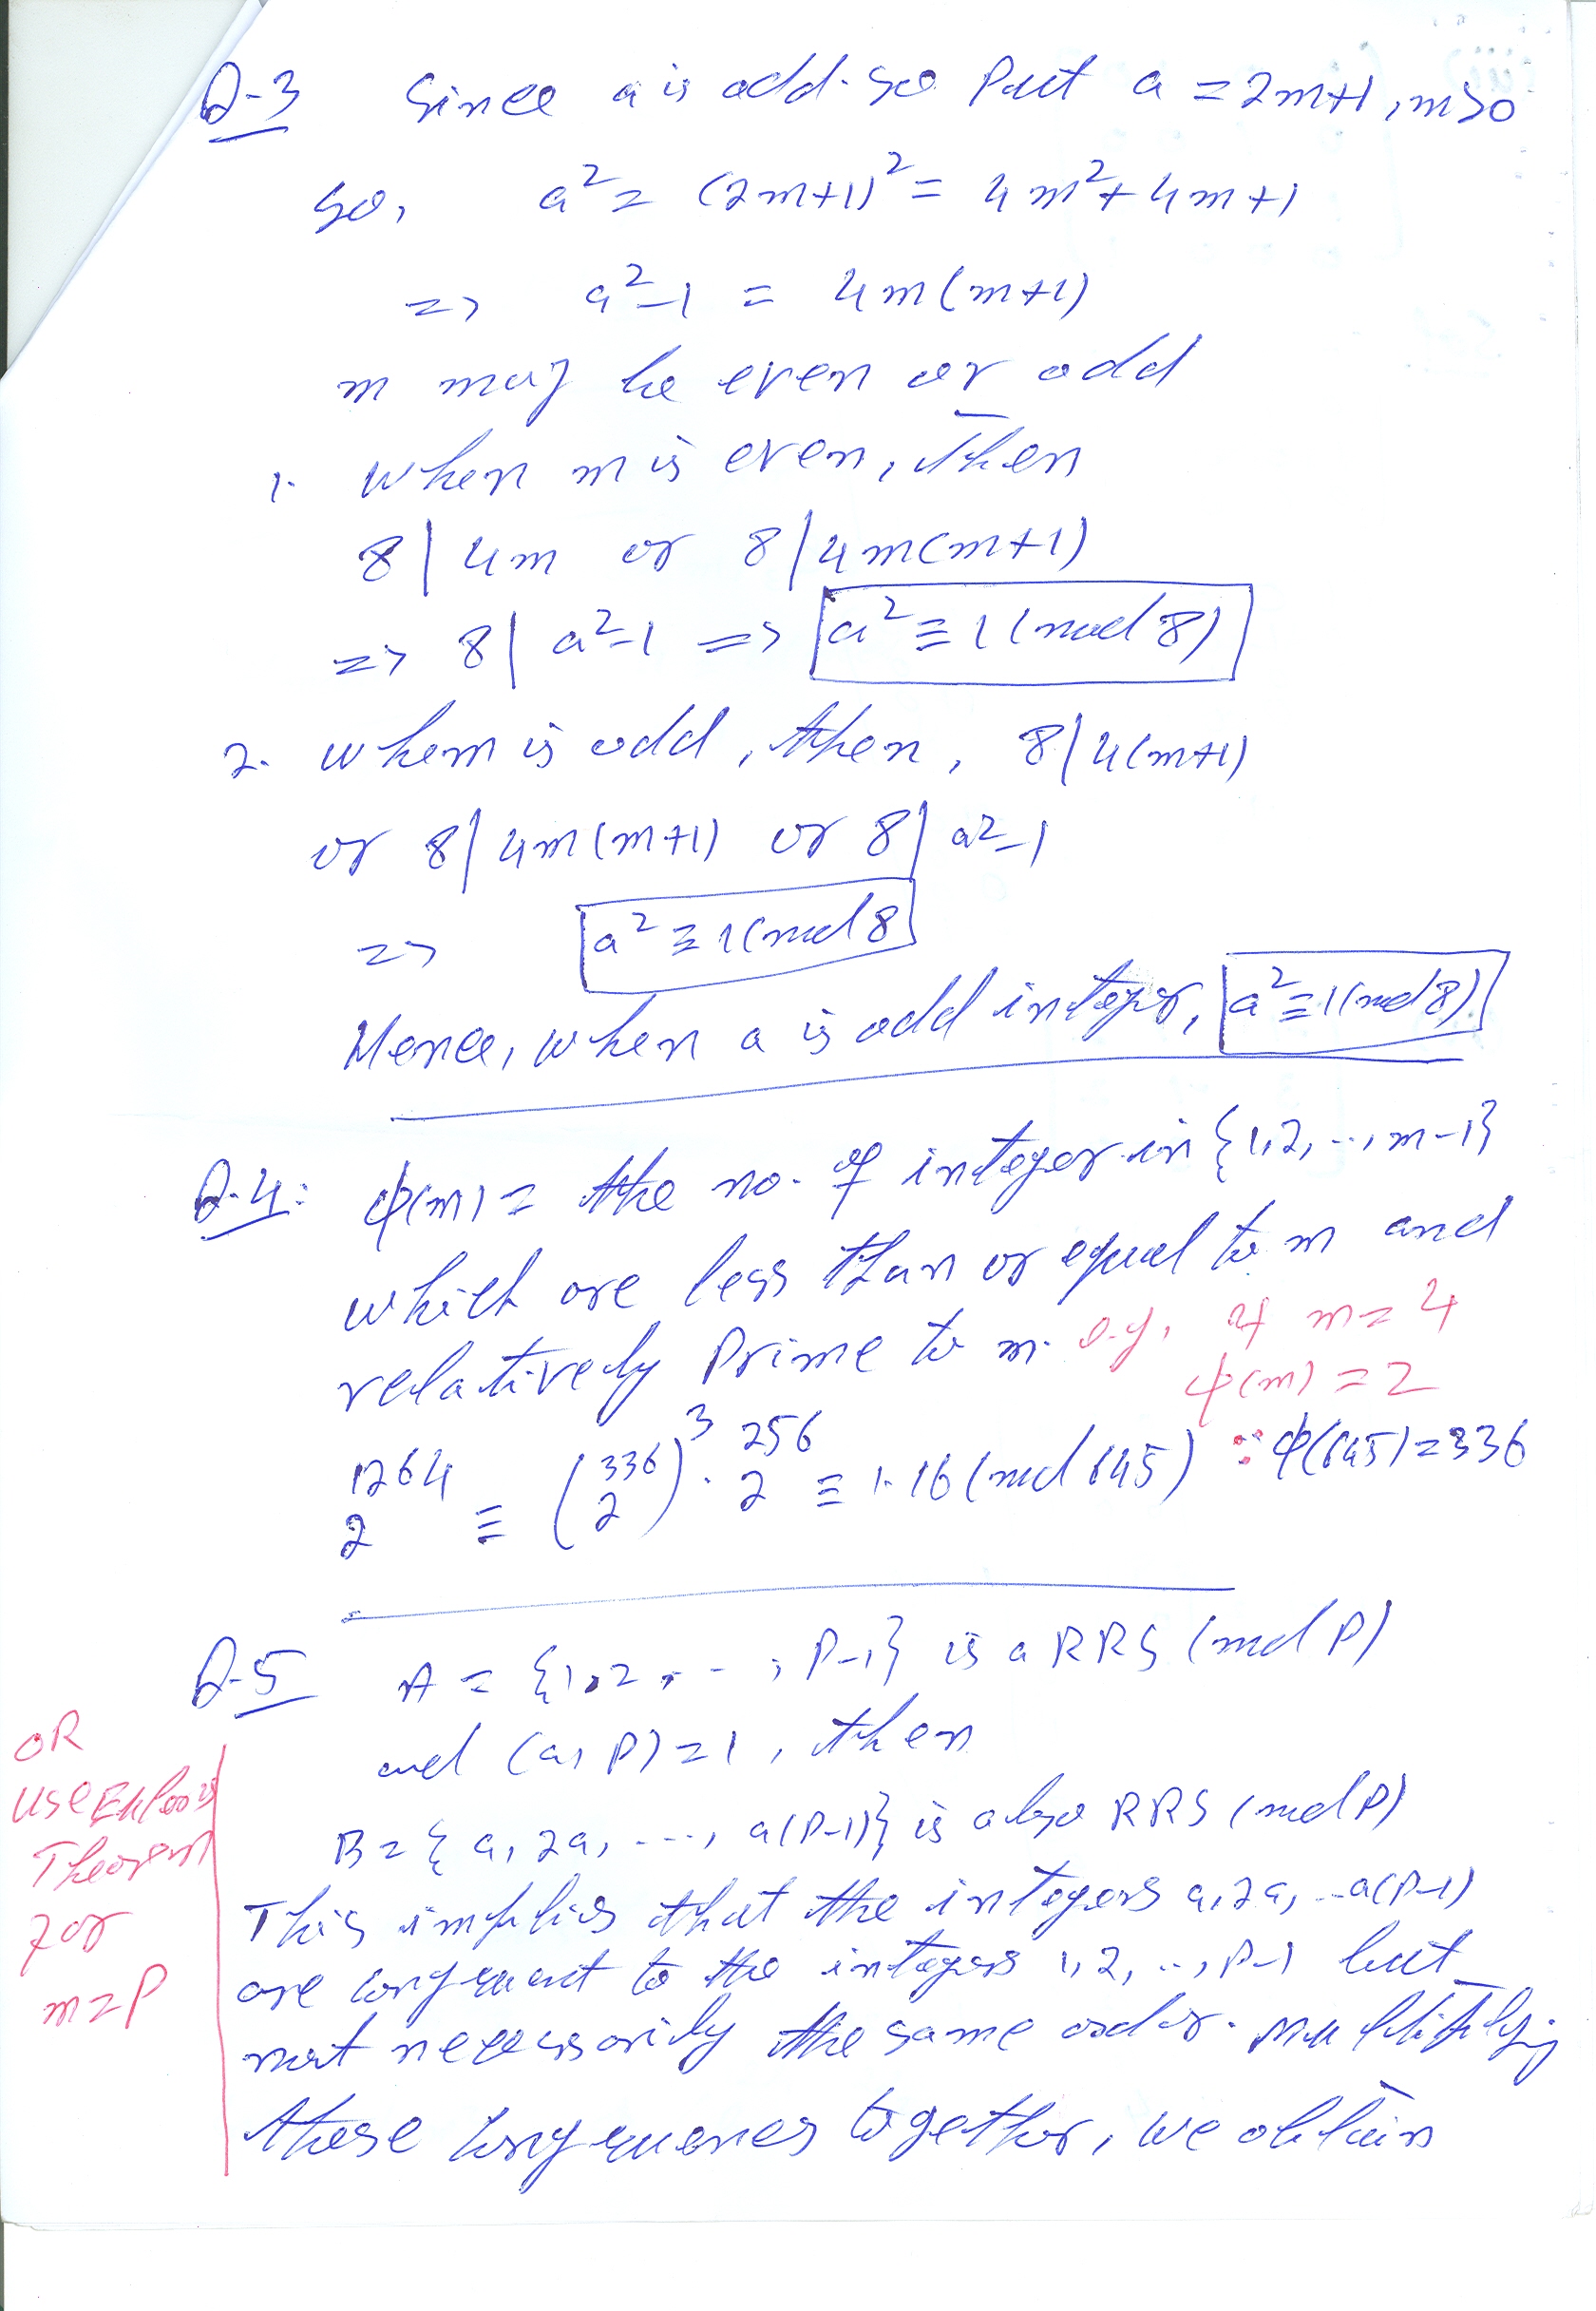 Q-3 Since a is odd. So Put a = 2m+1, m>0
So, a² = (2m+1)² = 4m²+4m+1
=> a²-1 = 4m(m+1)
m may be even or odd
1. When m is even, then
8 | 4m or 8 | 4m(m+1)
=> 8 | a²-1 => a² ≡ 1 (mod 8)
2. When m is odd, then, 8 | 4(m+1)
or 8 | 4m(m+1) or 8 | a²-1
=> a² ≡ 1 (mod 8
Hence, when a is odd integer, a² ≡ 1 (mod 8).
Q-4: φ(m) = the no. of integer in {1,2, ..., m-1}
which are less than or equal to m and
relatively Prime to m. e.g. if m = 4
φ(m) = 2
2^1264 ≡ (2^336)^3 . 2^256 ≡ 1.16 (mod 645) ∵ φ(645) = 336
Q-5 A = {1,2, - - , P-1} is a RRS (mod P)
and (a, P) = 1, then
B = {a, 2a, ...., a(P-1)} is also RRS (mod P)
This implies that the integers a, 2a, ..a(P-1)
are congruent to the integers 1,2, .., P-1 but
not necessarily the same order. Multiplying
these congruences together, we obtain
OR
Use Euler's
Theorem
for
m = P